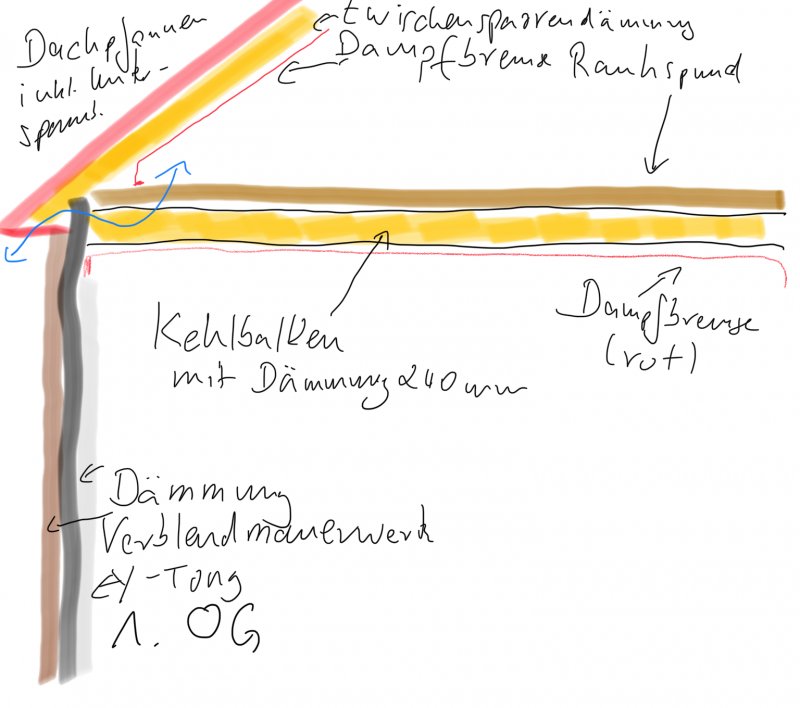 Dachpfannen
inkl. Unter-
spann.
Zwischensparrendämmung
Dampfbremse Rauhspund
Kehlbalken
mit Dämmung 240mm
Dampfbremse
(rot)
Dämmung
Verblendmauerwerk
Y-Tong
1. OG